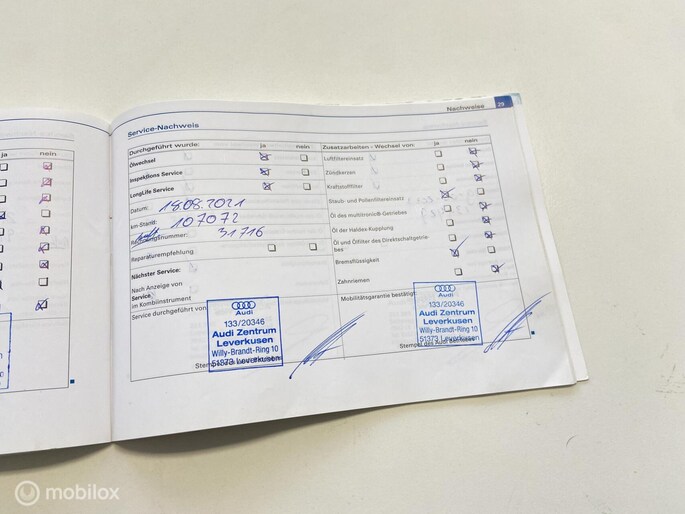 Nachweise 29
ja nein
Service-Nachweis
Durchgeführt wurde: ja nein
Ölwechsel
Inspektions Service
LongLife Service
Datum: 18.08.2021
km-Stand: 107072
Rechnungsnummer: 31716
Reparaturempfehlung
Nächster Service:
Nach Anzeige von
Service
im Kombiinstrument
Service durchgeführt von:
Audi
133/20346
Audi Zentrum
Leverkusen
Willy-Brandt-Ring 10
51373 Leverkusen
Zusatzarbeiten - Wechsel von: ja nein
Luftfiltereinsatz
Zündkerzen
Kraftstofffilter
Staub- und Pollenfiltereinsatz
Öl des multitronic®-Getriebes
Öl der Haldex-Kupplung
Öl und Ölfilter des Direktschaltgetrie-
bes
Bremsflüssigkeit
Zahnriemen
Mobilitätsgarantie bestätigt:
Audi
133/20346
Audi Zentrum
Leverkusen
Willy-Brandt-Ring 10
51373 Leverkusen
Stempel des Audi Betriebes
mobilox